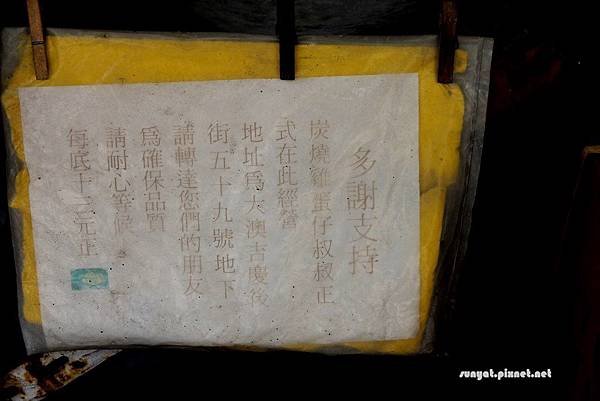 多謝支持
炭燒雞蛋仔叔叔正
式在此經營
地址為大澳吉慶後
街五十九號地下
請轉達您們的朋友
為確保品質
請耐心等候
每底十三元正
sunyat.pixnet.net